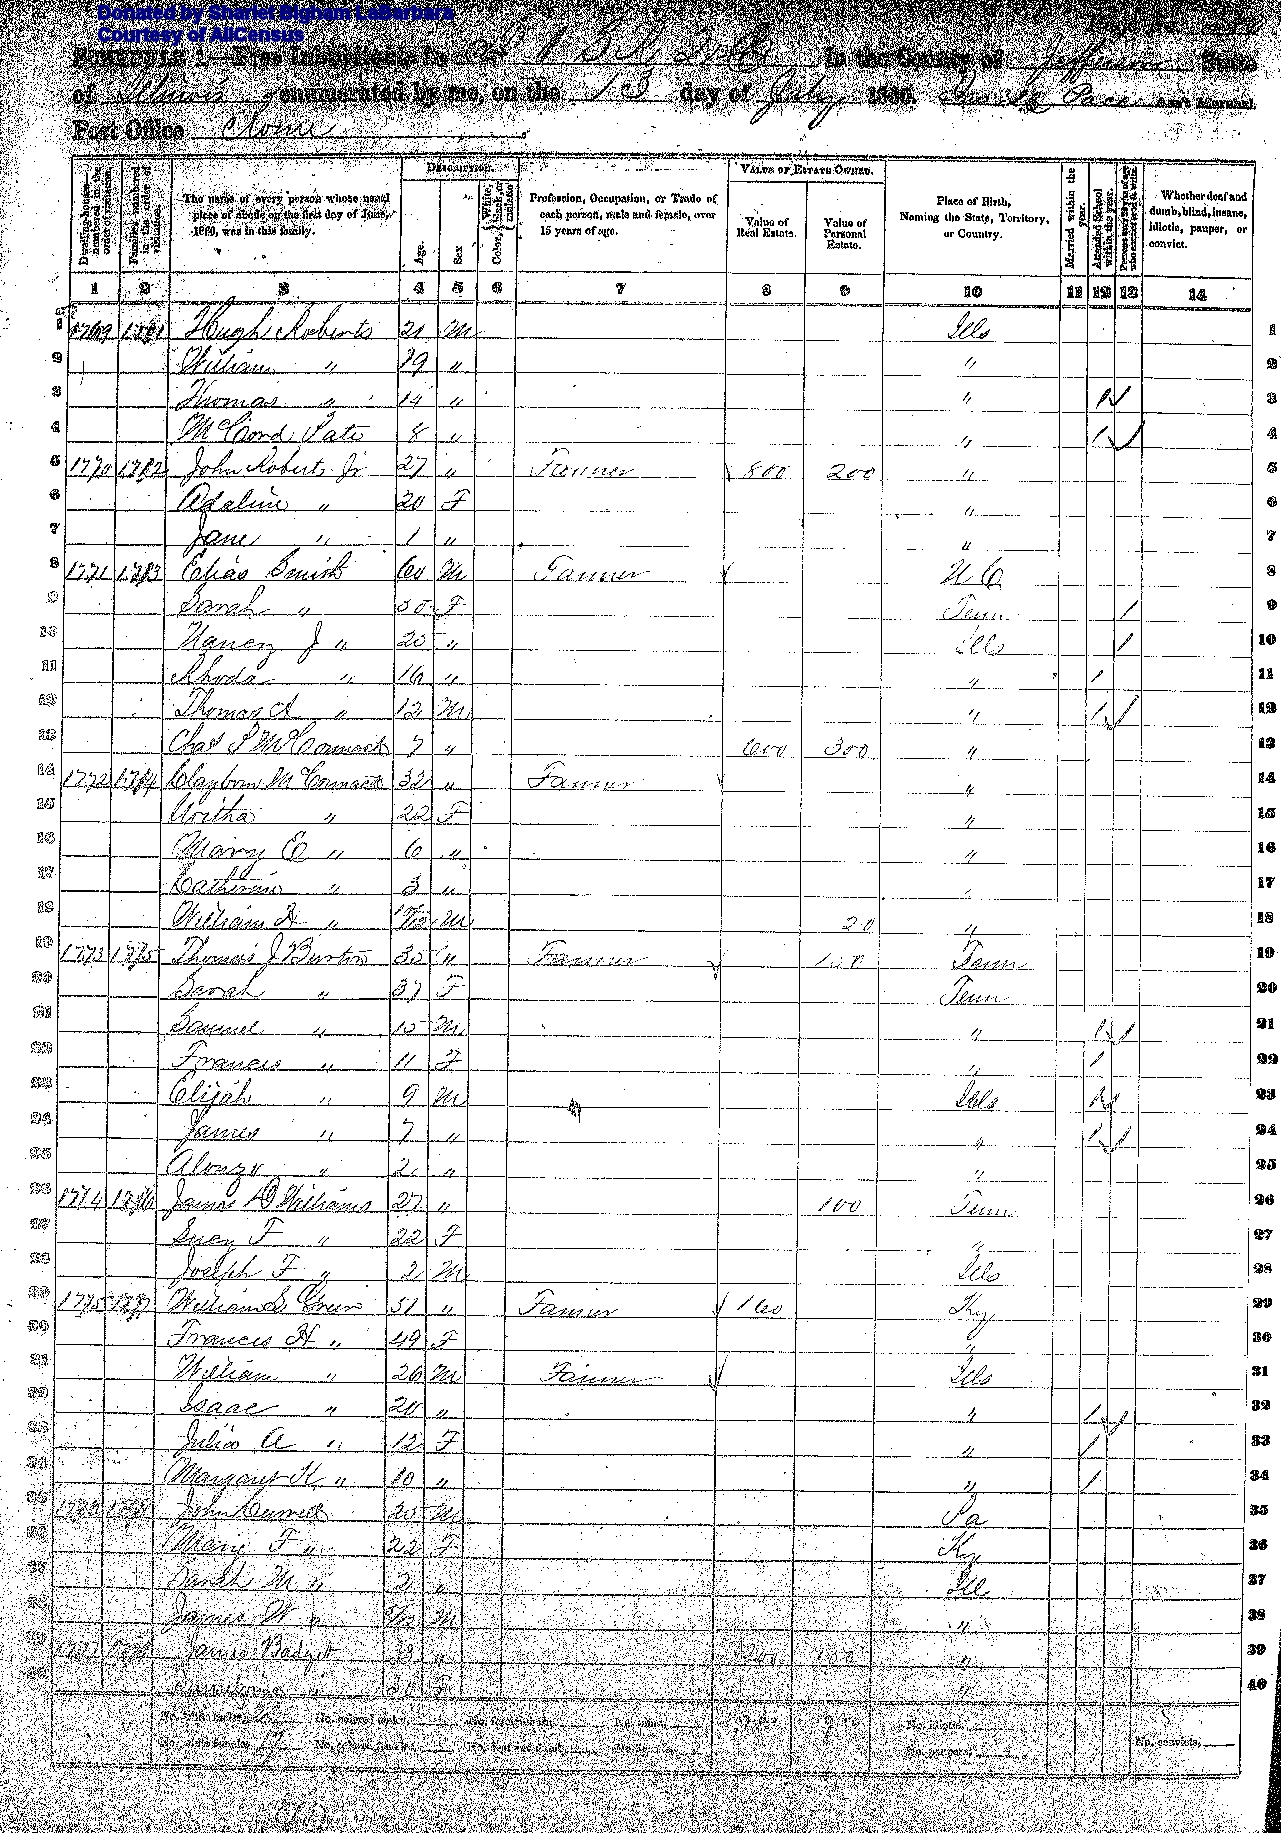 Donated by Shariet Bigham LaBarbara
Courtesy of AllCensus
in the County of Jefferson State
of Illinois enumerated by me, on the 13 day of July, 1860. Pace Ass't Marshal.
Post Office Rome
DESCRIPTION. VALUE OF ESTATE OWNED.
Dwelling-houses— numbered in the order of visitation. Families numbered in the order of visitation. The name of every person whose usual place of abode on the first day of June, 1860, was in this family. Age. Sex Color, White, black, or mulatto Profession, Occupation, or Trade of each person, male and female, over 15 years of age. Value of Real Estate. Value of Personal Estate. Place of Birth, Naming the State, Territory, or Country. Married within the year. Attended School within the year. Whether deaf and dumb, blind, insane, idiotic, pauper, or convict.
1 2 3 4 5 6 7 8 9 10 11 12 13 14
1 1769 1781 Hugh Roberts 21 M Ills 1
2 William " 19 " " 2
3 Thomas " 14 " " 1 3
4 McCord Tate 8 " " 1 4
5 1770 1782 John Roberts Jr 27 " Farmer 800 200 " 5
6 Adaline " 20 F " 6
7 Jane " 1 " " 7
8 1771 1783 Elias Smith 60 M Farmer N C 8
9 Sarah " 50 F Tenn 1 9
10 Nancy J " 20 " Ills 1 10
11 Rhoda " 16 " " 1 11
12 Thomas A " 12 M " 1 12
13 Chas S McCormack 7 " 600 300 " 13
14 1772 1784 Clayborn McCormack 32 " Farmer " 14
15 Uritha " 22 F " 15
16 Mary E " 6 " " 16
17 Catherine " 3 " " 17
18 William H " M 20 " 18
19 1773 1785 Thomas J Burton 35 " Farmer 100 Tenn 19
20 Sarah " 37 F Tenn 20
21 Samuel " 15 M " 1 21
22 Frances " 11 F " 1 22
23 Elijah " 9 M Ills 1 23
24 James " 7 " " 1 24
25 Alonzo " 2 " " 25
26 1774 1786 James D Williams 27 " 100 Tenn 26
27 Lucy F " 22 F " 27
28 Joseph F " 2 M Ills 28
29 1775 1787 William S Green 51 " Farmer 160 Ky 29
30 Frances H " 49 F " 30
31 William " 26 M Farmer Ills 31
32 Isaac " 20 " " 1 32
33 Julia A " 12 F " 1 33
34 Margaret H " 10 " " 1 34
35 John 25 M Pa 35
36 Mary F " 22 F Ky 36
37 Sarah M " 2 " Ill 37
38 James W " M " 38
39 James Badgett 38 " " 39
40 " F " 40
No. convicts,